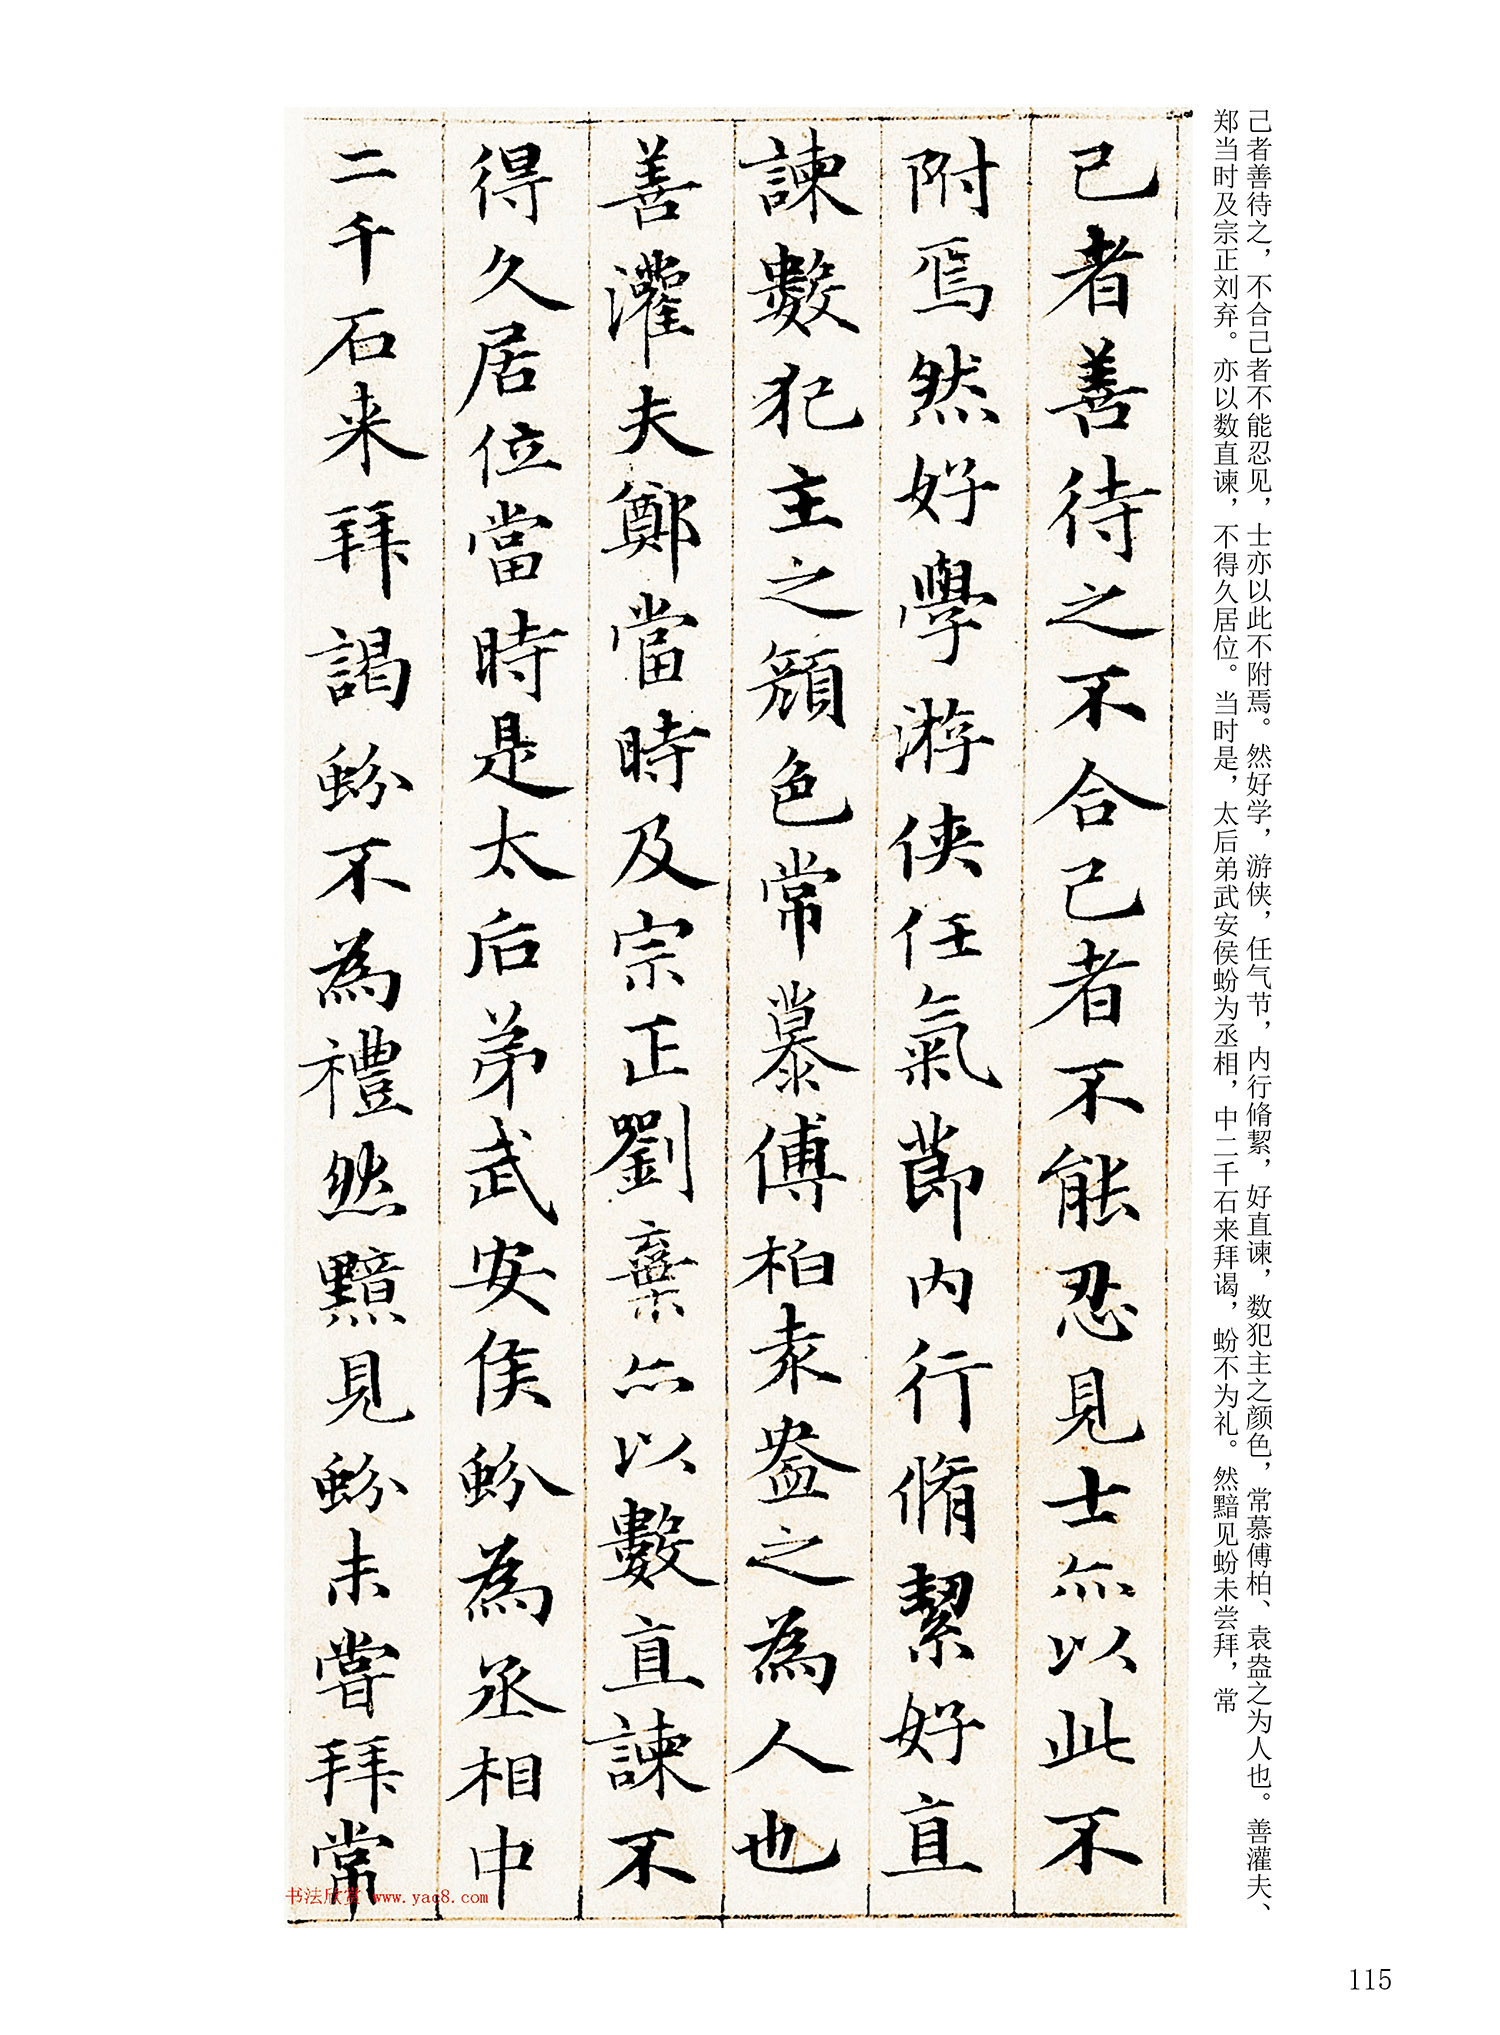 己者善待之，不合己者不能忍见，士亦以此不附焉。然好学，游侠，任气节，内行脩絜，好直谏，数犯主之颜色，常慕傅柏、袁盎之为人也。善灌夫、
郑当时及宗正刘弃。亦以数直谏，不得久居位。当时是，太后弟武安侯蚡为丞相，中二千石来拜谒，蚡不为礼。然黯见蚡未尝拜，常
己者善待之不合己者不能忍見士亦以此不
附焉然好學游俠任氣節内行脩絜好直
諫數犯主之顏色常慕傅柏袁盎之為人也
善灌夫鄭當時及宗正劉棄亦以數直諫不
得久居位當時是太后弟武安侯蚡為丞相中
二千石来拜謁蚡不為禮然黯見蚡未嘗拜常
书法欣赏 www.yac8.com
115